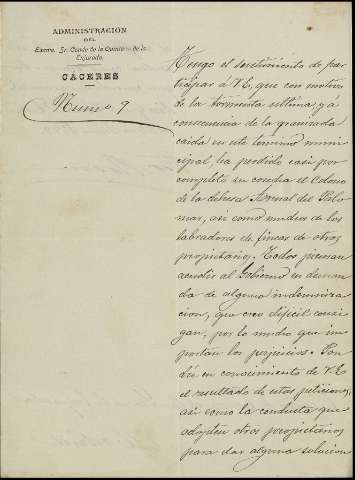 ADMINISTRACIÓN
DEL
Excmo. Sr. Conde de la Quinta de la
Enjarada
CACERES
Numo 9
Tengo el sentimiento de par
ticipar á V.E, que con motivo
de la tormenta ultima, y á
consecuencia de la granizada
caida en este termino muni
cipal, ha perdido casi por
completo su cosecha el Colono
de la dehesa Arenal del Palo
mar, asi como muchos de los
labradores de fincas de otros
propietarios. Todos piensan
acudir al Gobierno en deman
da de alguna indemniza
cion, que creo dificil consi
gan, por lo mucho que im
portan los perjuicios. Pon
dré en conocimiento de V.E
el resultado de estas peticiones,
asi como la conducta que
adopten otros propietarios
para dar alguna solucion